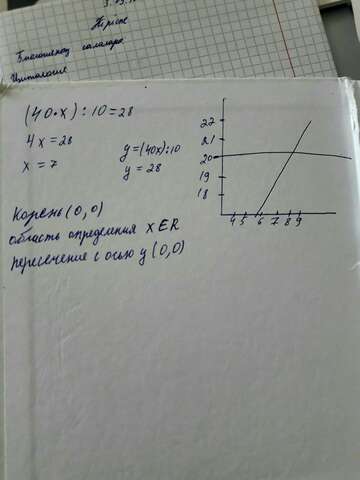 Негізгі
Цитология
(40·x):10=28
4x=28
x=7
y=(40x):10
y=28
22
21
20
19
18
4 5 6 7 8 9
Корень (0,0)
область определения x ER
пересечение с осью y (0,0)